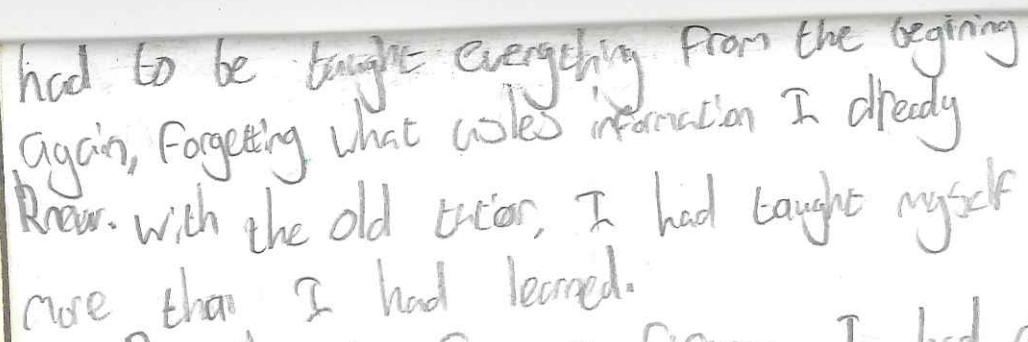 had to be taught everything from the begining
again, forgetting what usles information I already
knew. With the old tutor, I had taught myself
more than I had learned.
I had